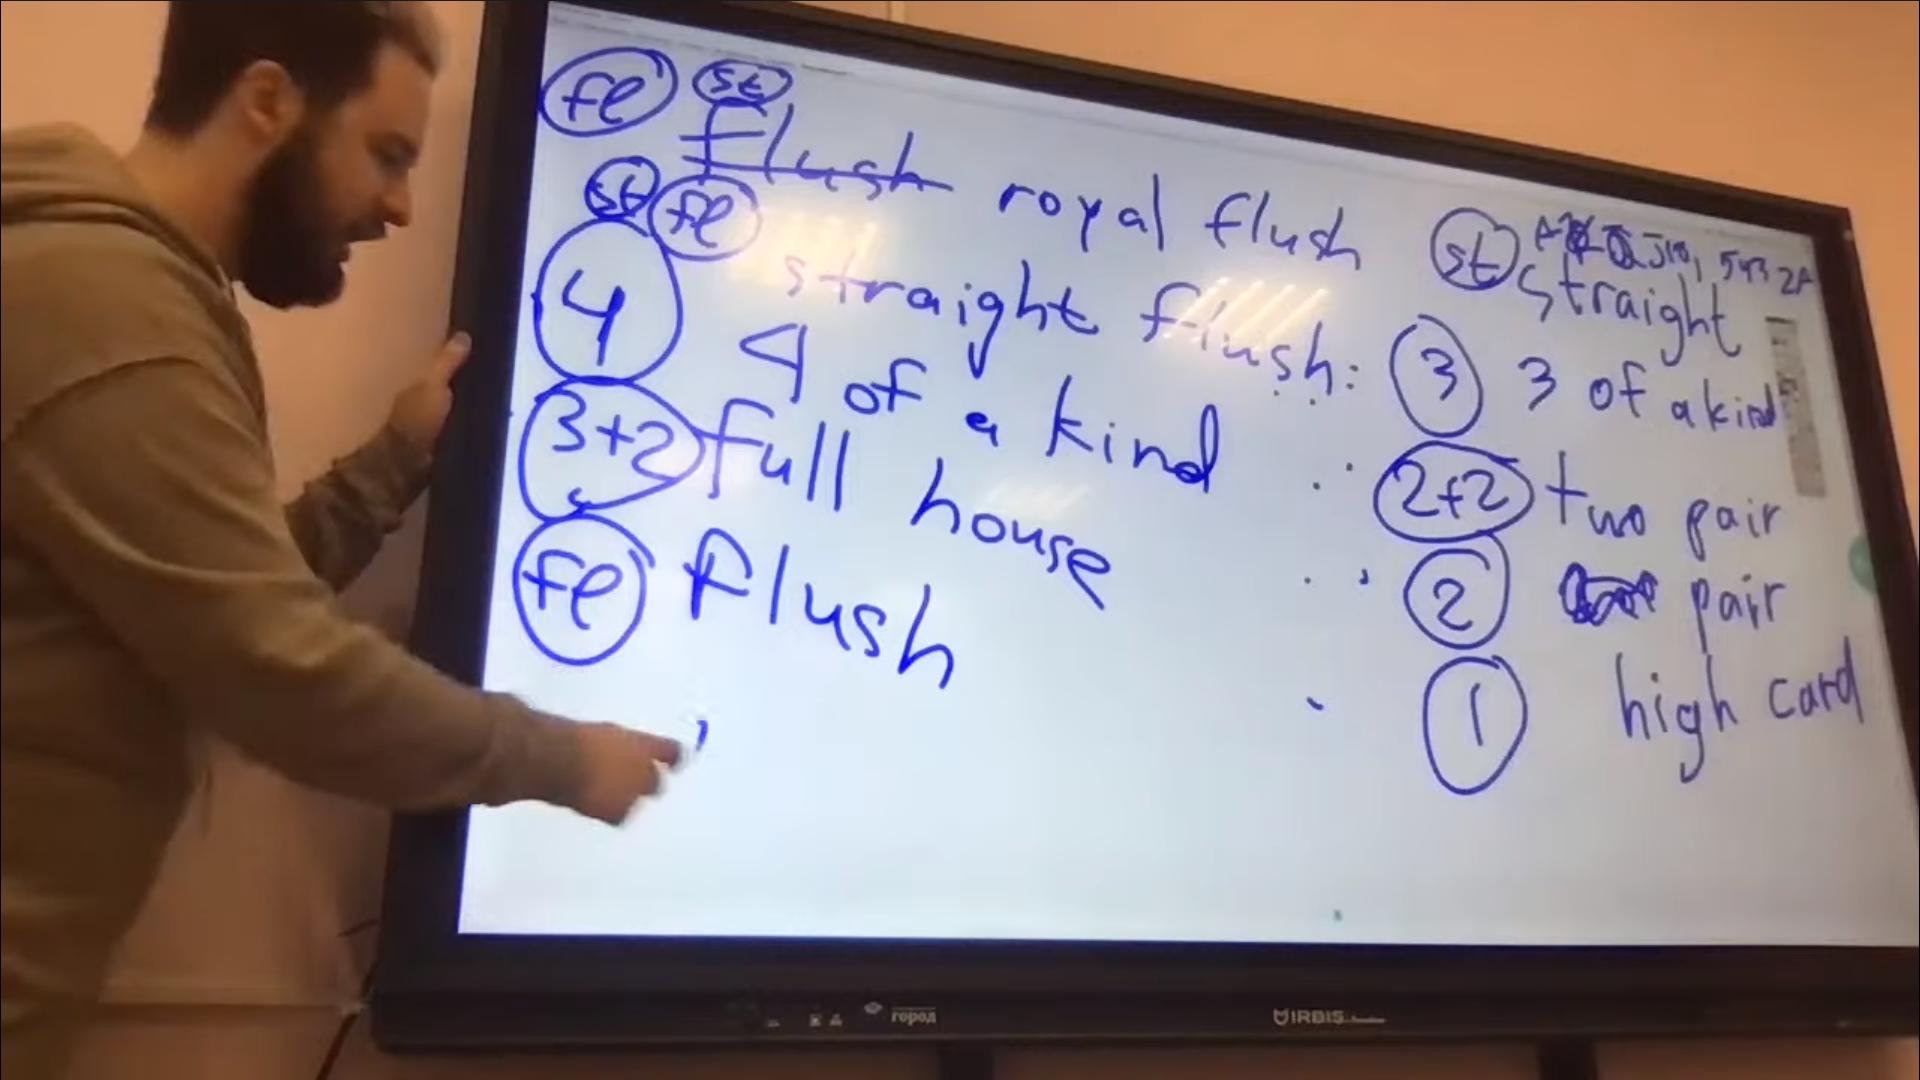 fl st
flush royal flush
st fl straight flush:
4 4 of a kind
3+2 full house
fl flush
A K Q J 10, 5 4 3 2 A
st straight
3 3 of a kind
2+2 two pair
2 pair
1 high card
город
IRBIS